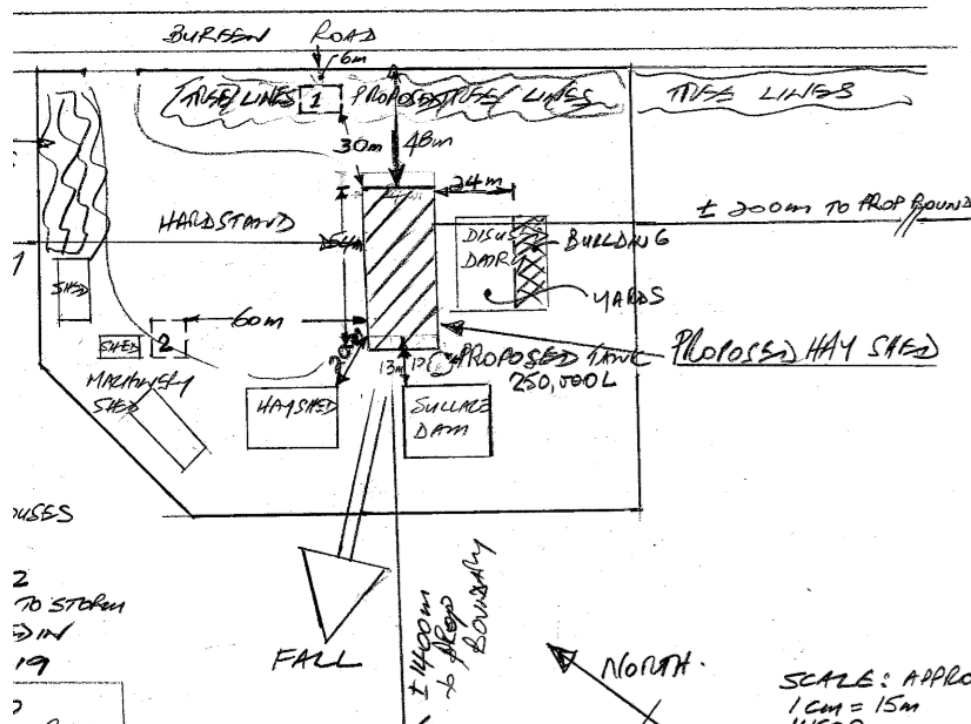 BUREEN ROAD
6m
TREE/LINES 1 PROPOSED TREE/LINES
TREE LINES
30m 48m
24m
HARDSTAND
54m
± 200m TO PROP BOUND
DISUSED DAIRY
BUILDING
YARDS
SHED
60m
SHED 2
MACHINERY SHED
20m
13m
PROPOSED TANK
250,000L
PROPOSED HAY SHED
HAYSHED
SULLAGE DAM
OUSES
2
TO STORM
ED IN
19
FALL
± 1400m
to PROP
BOUNDARY
NORTH.
SCALE: APPRO
1cm = 15m